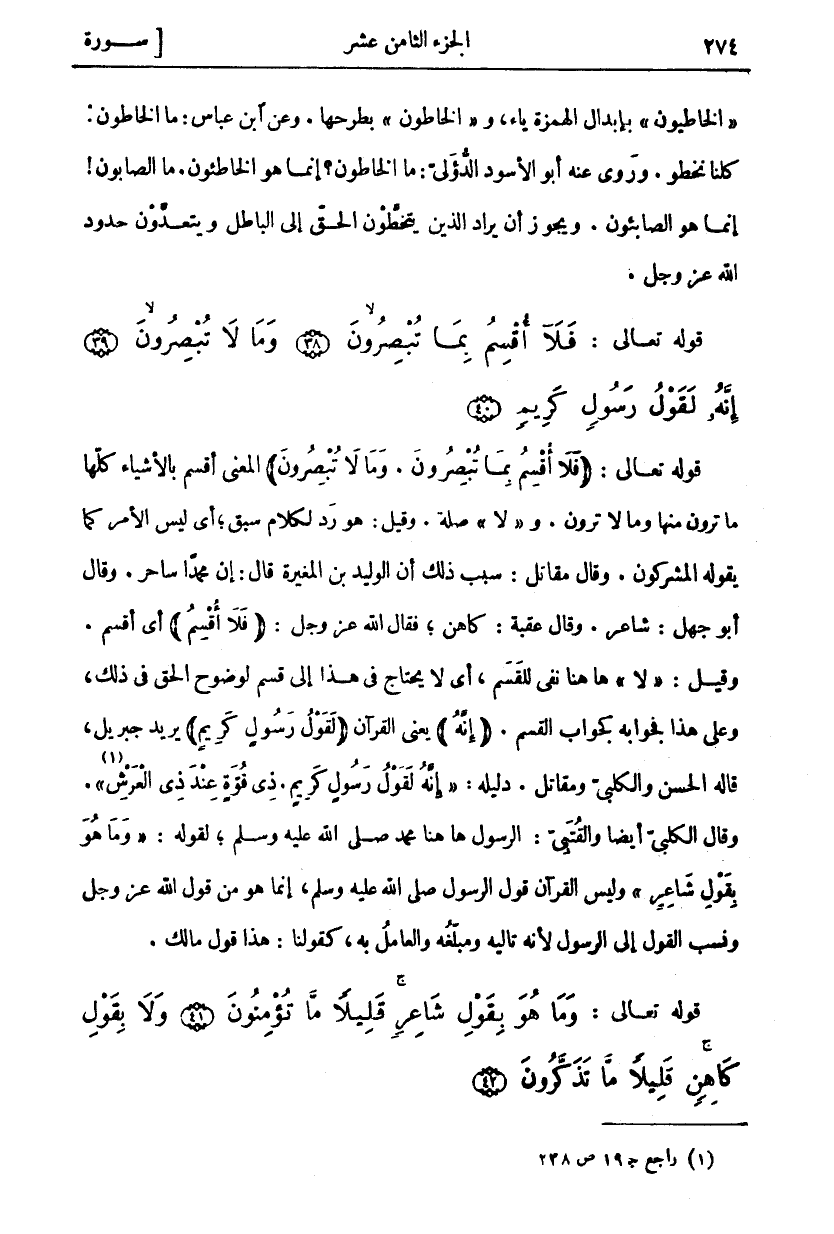 ٢٧٤ الجزء الثامن عشر [ سـورة
« الخاطيون » بإبدال الهمزة ياء، و « الخاطون » بطرحها . وعن ٱبن عباس: ما الخاطون!
كلنا نخطو . ورَوى عنه أبو الأسود الدُّؤَلىّ: ما الخاطون؟ إنمـا هو الخاطئون. ما الصابون!
إنمـا هو الصابئون . ويجوز أن يراد الذين يتخطَّوْن الحـقّ إلى الباطل ويتعـدَّوْن حدود
الله عز وجل .
قوله تعـالى : فَلَآ أُقْسِمُ بِمَـا تُبْصِرُونَ ﴿٣٨﴾ وَمَا لَا تُبْصِرُونَ ﴿٣٩﴾
إِنَّهُۥ لَقَوْلُ رَسُولٍ كَرِيمٍ ﴿٤٠﴾
قوله تعـالى : ﴿فَلَا أُقْسِمُ بِمَـا تُبْصِرُونَ . وَمَا لَا تُبْصِرُونَ﴾ المعنى أقسم بالأشياء كلّها
ما ترون منها وما لا ترون . و « لا » صلة . وقيل: هو رَد لكلام سبق؛ أى ليس الأمر كما
يقوله المشركون . وقال مقاتل : سبب ذلك أن الوليد بن المغيرة قال: إن محمدًا ساحر . وقال
أبو جهل : شاعر . وقال عقبة : كاهن ؛ فقال الله عز وجل : ﴿ فَلَا أُقْسِمُ ﴾ أى أقسم .
وقيـل : « لا » ها هنا نفى للقَسَم ، أى لا يحتاج فى هـذا إلى قسم لوضوح الحق فى ذلك،
وعلى هذا فجوابه كجواب القسم . ﴿ إِنَّهُ ﴾ يعنى القرآن ﴿لَقَوْلُ رَسُولٍ كَرِيمٍ﴾ يريد جبريل،
قاله الحسن والكلبىّ ومقاتل . دليله : « إِنَّهُ لَقَوْلُ رَسُولٍ كَرِيمٍ. ذِى قُوَّةٍ عِنْدَ ذِى الْعَرْشِ»(١) .
وقال الكلبىّ أيضا والقُتَبِىّ : الرسول ها هنا محمد صـلى الله عليه وسـلم ؛ لقوله : « وَمَا هُوَ
بِقَوْلِ شَاعِرٍ » وليس القرآن قول الرسول صلى الله عليه وسلم، إنما هو من قول الله عز وجل
ونسب القول إلى الرسول لأنه تاليه ومبلّغه والعاملُ به، كقولنا : هذا قول مالك .
قوله تعـالى : وَمَا هُوَ بِقَوْلِ شَاعِرٍ ۚ قَلِيلًا مَّا تُؤْمِنُونَ ﴿٤١﴾ وَلَا بِقَوْلِ
كَاهِنٍ ۚ قَلِيلًا مَّا تَذَكَّرُونَ ﴿٤٢﴾
(١) راجع جـ ١٩ ص ٢٣٨